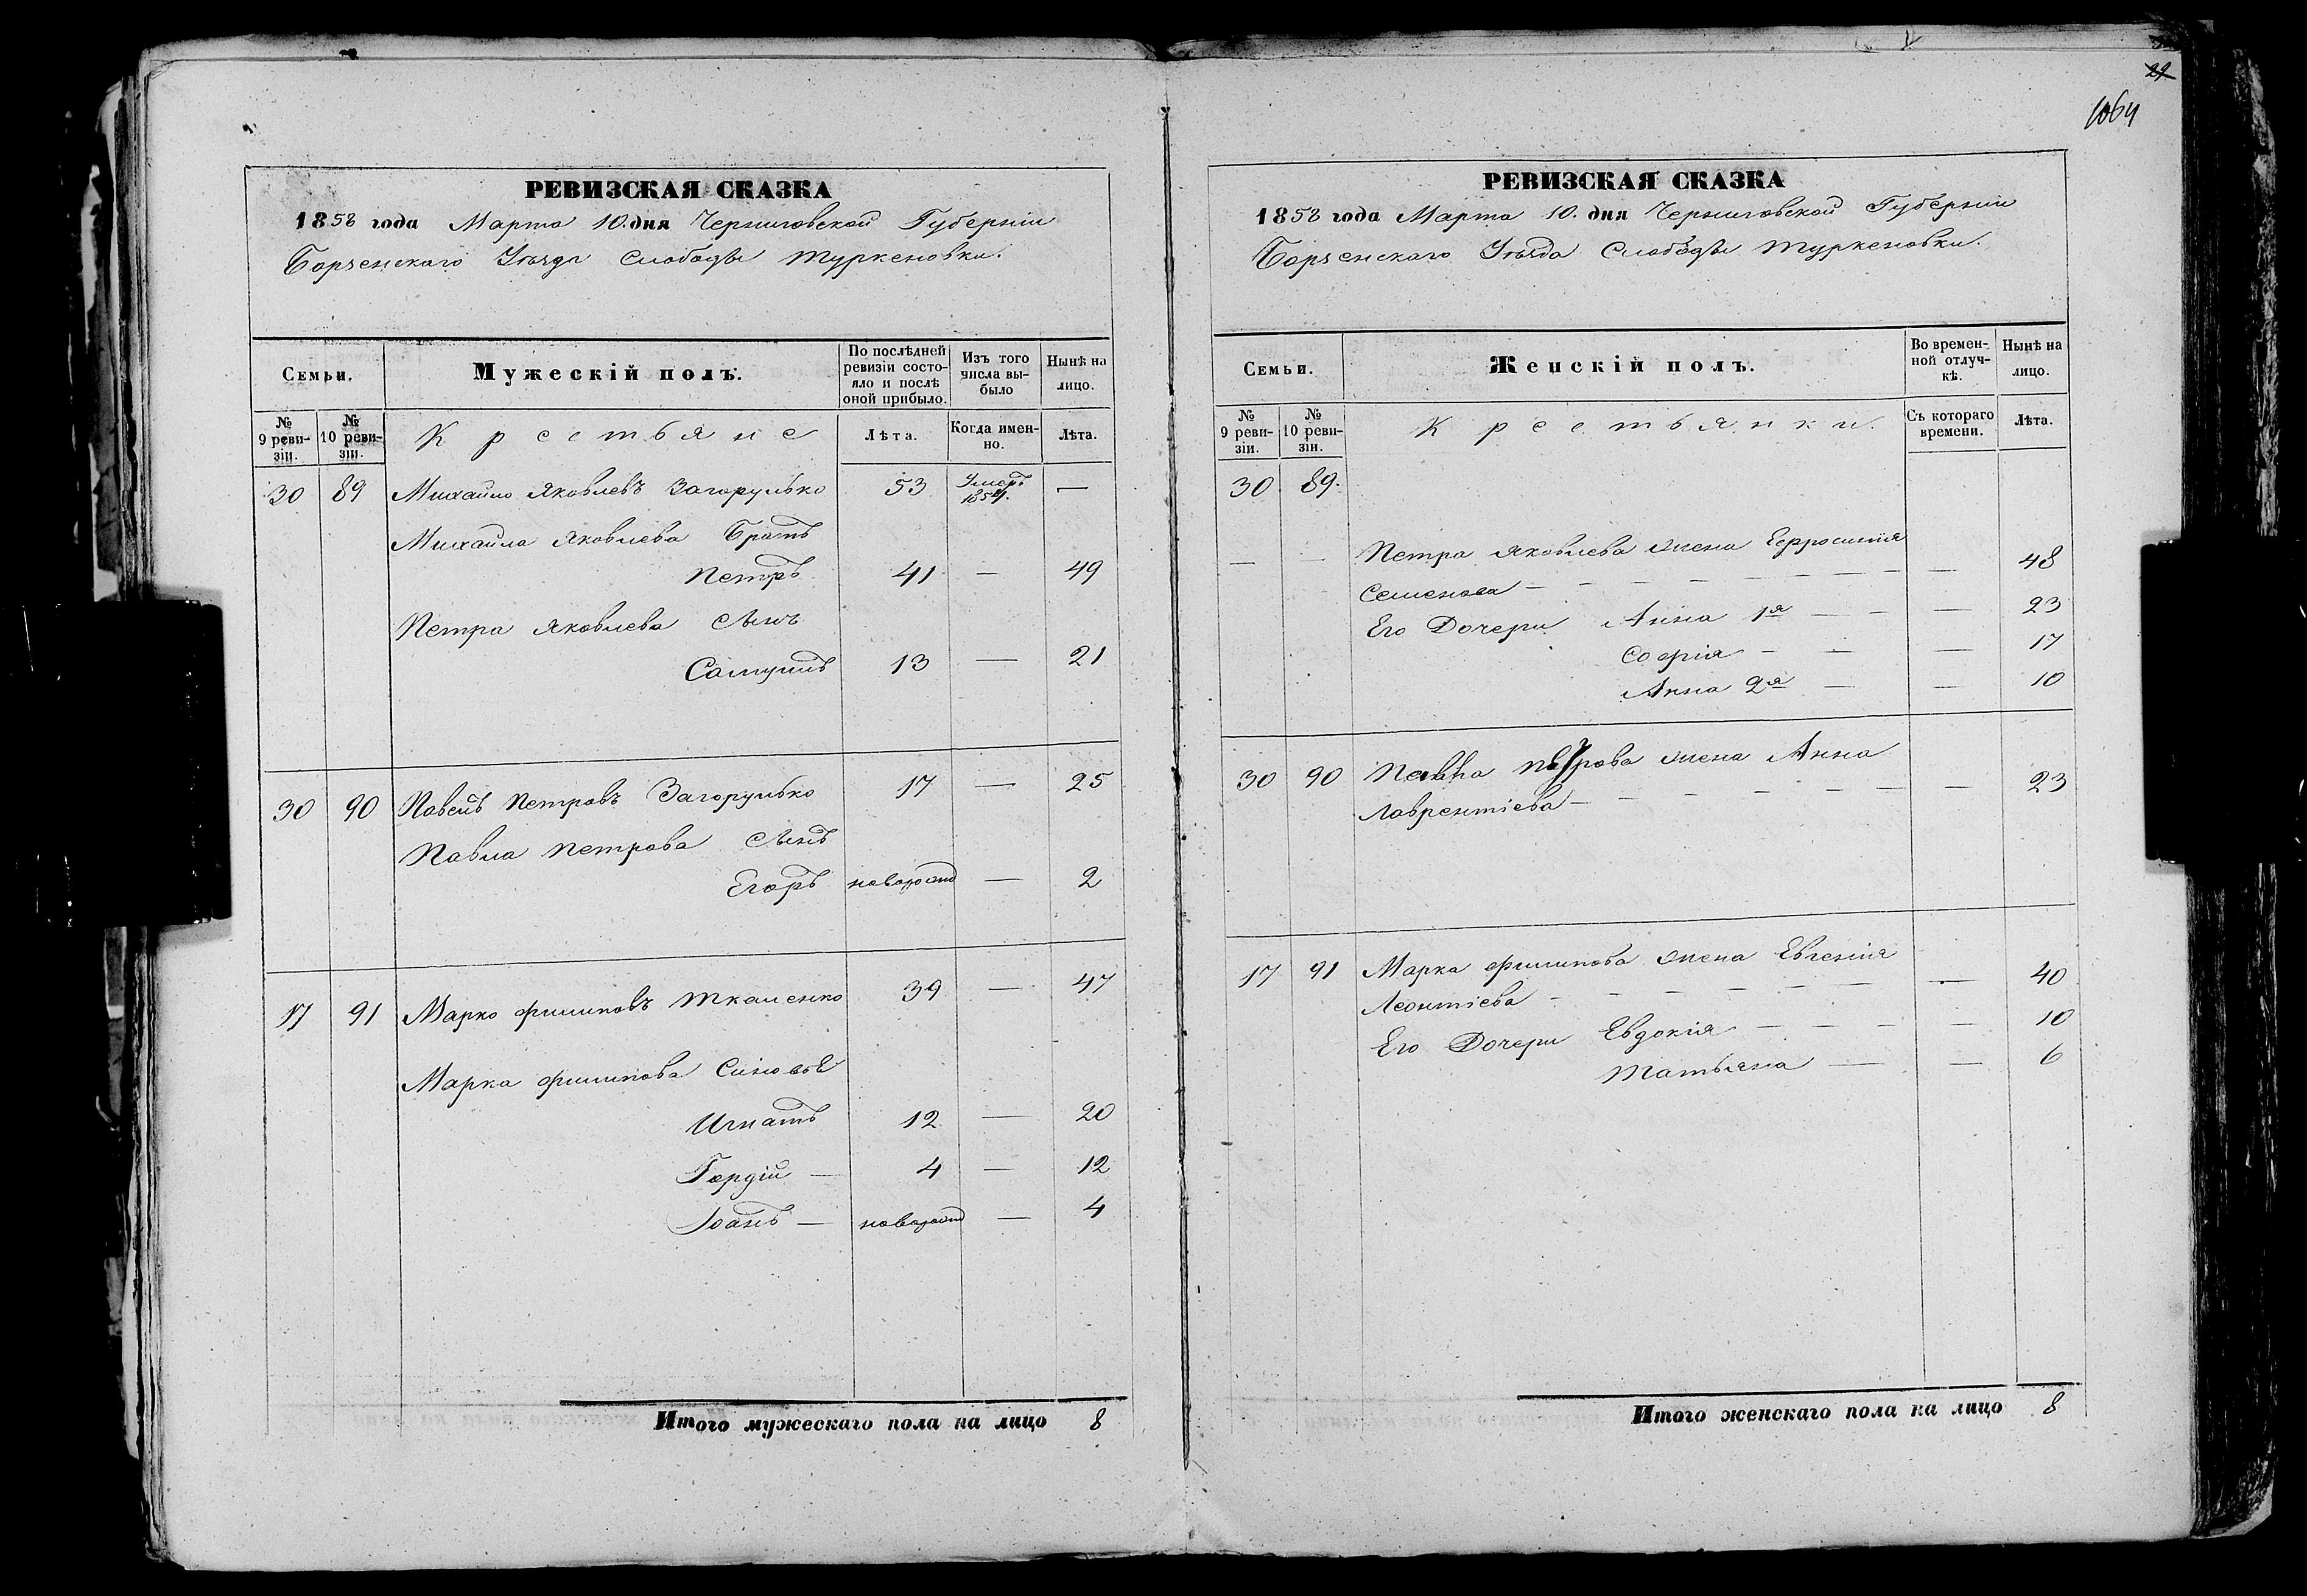 29
1064
РЕВИЗСКАЯ СКАЗКА
1858 года Марта 10. дня Черниговской Губерніи
Борзенскаго Уѣзда Слободы Туркеновки.
Семьи.
Мужескій полъ.
По послѣдней ревизіи состояло и послѣ оной прибыло.
Изъ того числа выбыло
Нынѣ на лицо.
№ 9 ревизіи.
№ 10 ревизіи.
Крестьяне
Лѣта.
Когда именно.
Лѣта.
30 89 Михайло Яковлевъ Загорулько 53 Умеръ 1854. —
Михайла Яковлева Братъ
Петръ 41 — 49
Петра Яковлева Сынъ
Самуилъ 13 — 21
30 90 Павелъ Петровъ Загорулько 17 — 25
Павла Петрова Сынъ
Егоръ новорожд — 2
17 91 Марко Филиповъ Ткаченко 39 — 47
Марка Филипова Синовья
Игнатъ 12 — 20
Гордій — 4 — 12
Іоанъ — новорожд — 4
Итого мужескаго пола на лицо 8
РЕВИЗСКАЯ СКАЗКА
1858 года Марта 10. дня Черниговской Губерніи
Борзенскаго Уѣзда Слободы Туркеновки.
Семьи.
Женскій полъ.
Во временной отлучкѣ.
Нынѣ на лицо.
№ 9 ревизіи.
№ 10 ревизіи.
Крестьянки.
Съ котораго времени.
Лѣта.
30 89.
— — Петра Яковлева жена Ефросинія
Семенова — — — — — — — — — 48
Его Дочери Анна 1я — — — 23
Софія — — — 17
Анна 2я — — 10
30 90 Павла Петрова жена Анна
Лаврентіева — — — — — — — 23
17 91 Марка Филипова жена Евгенія
Леонтіева — — — — — — — 40
Его Дочери Евдокія — — — — 10
Татьяна — — 6
Итого женскаго пола на лицо 8